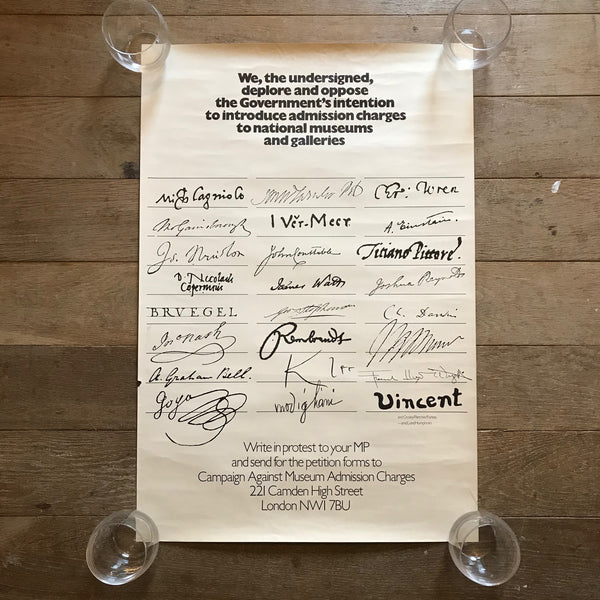 We, the undersigned,
deplore and oppose
the Government's intention
to introduce admission charges
to national museums
and galleries
Chr: Wren
I Ver-Meer
A. Einstein.
Is. Newton
John Constable
Titiano Pittore
Nicolaus
Copernicus
James Watt
Joshua Reynolds
BRVEGEL
Ch. Darwin
Jno Nash
Rembrandt
A. Graham Bell.
Klee
Frank Lloyd Wright
Goya
modigliani
Vincent
Write in protest to your MP
and send for the petition forms to
Campaign Against Museum Admission Charges
221 Camden High Street
London NW1 7BU